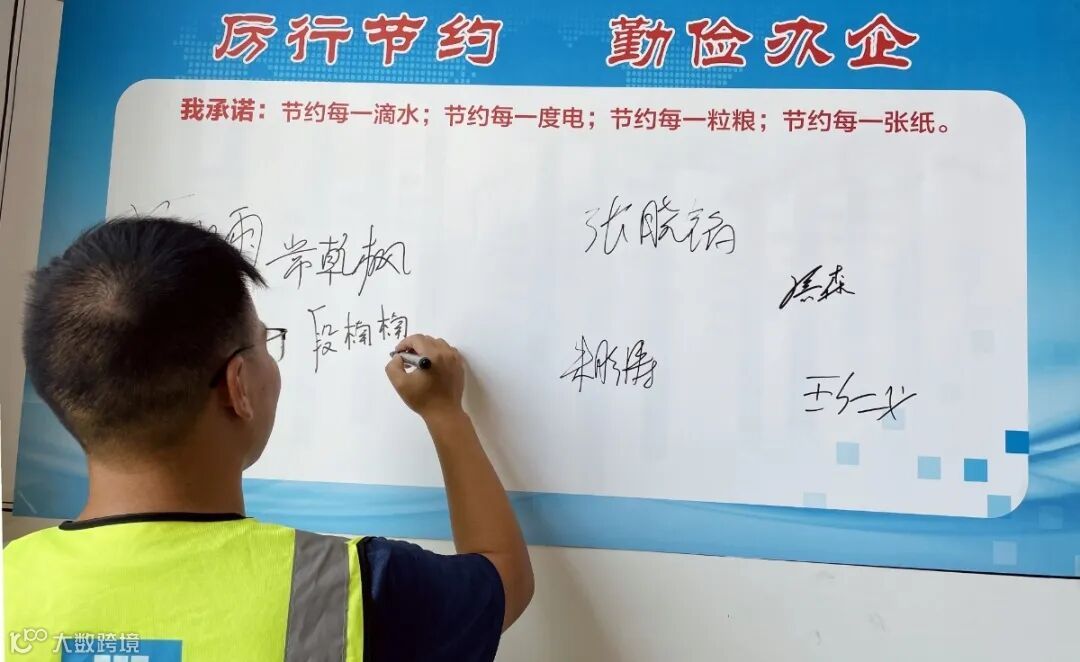 厉行节约 勤俭办企
我承诺：节约每一滴水；节约每一度电；节约每一粒粮；节约每一张纸。
雨
常乾枫
张晓
森
段楠楠
朱
大数跨境